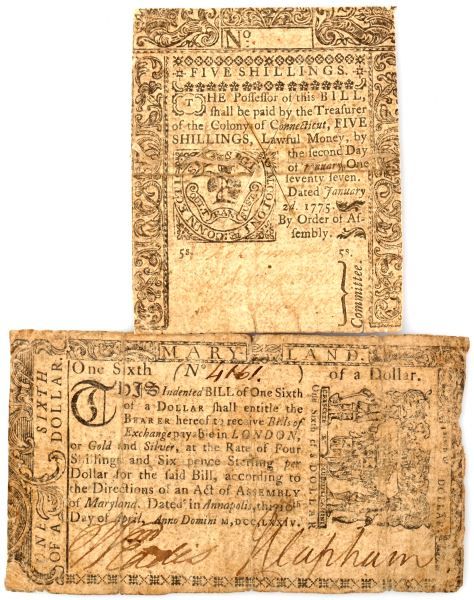 No.
FIVE SHILLINGS.
THE Possessor of this BILL,
shall be paid by the Treasurer
of the Colony of Connecticut, FIVE
SHILLINGS, Lawful Money, by
the second Day
of January, One
seventy seven.
Dated January
2d. 1775.
By Order of As-
sembly.
5s. 5s.
Committee.
MARYLAND.
One Sixth (No 4161. of a Dollar.
THIS Indented BILL of One Sixth
of a DOLLAR shall entitle the
BEARER hereof to receive Bills of
Exchange payable in LONDON,
or Gold and Silver, at the Rate of Four
Shillings and Six pence Sterling per
Dollar for the said Bill, according to
the Directions of an Act of ASSEMBLY
of Maryland. Dated in Annapolis, this 10th
Day of April, Anno Domini M,DCC,LXXIV.
ONE SIXTH
OF A DOLLAR
One Sixth of a DOLLAR
J Clapham